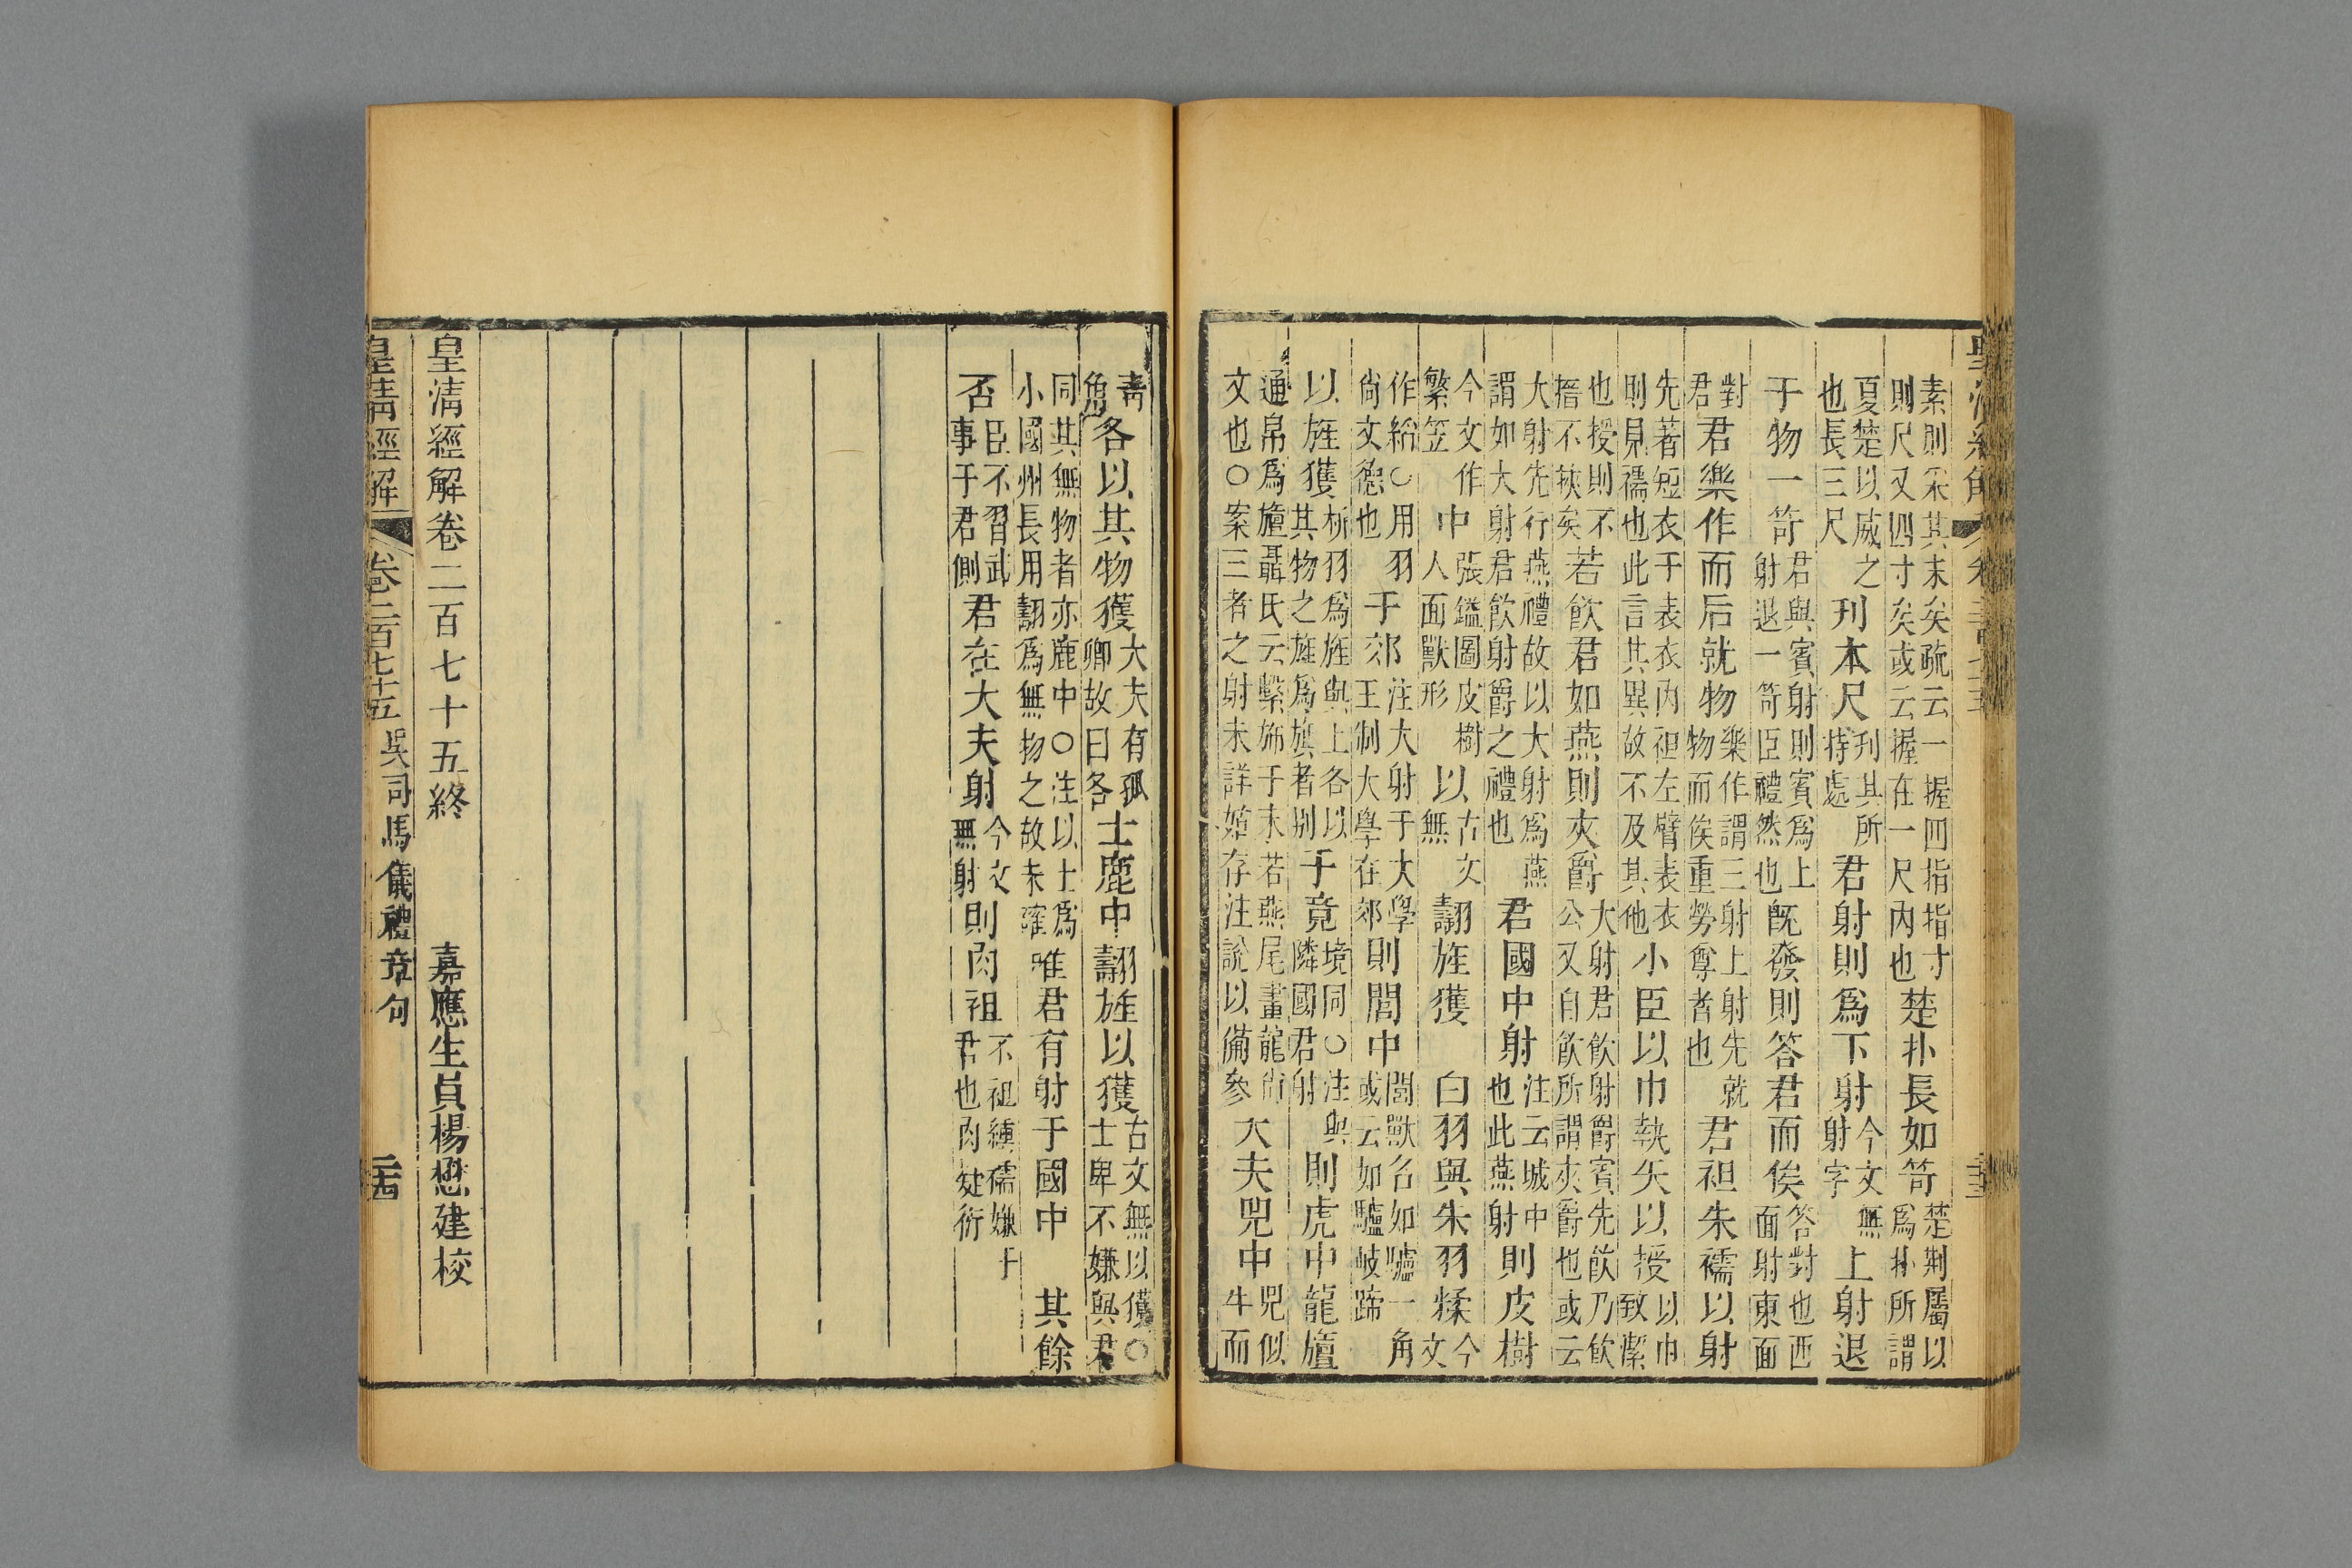 皇清經解
素則宋其末矣疏云一握四指指寸則尺又四寸矣或云握在一尺內也楚扑長如笴楚荆屬以爲扑所謂
夏楚以威之也長三尺刋本尺刋其所持處君射則爲下射今文無射字上射退
于物一笴君與賓射則賓爲上射退一笴臣禮然也旣發則答君而俟答對也西面射東面
對君君樂作而后就物樂作謂三射上射先就物而俟重勞尊者也君袒朱襦以射
先著短衣于表衣內袒左臂表衣則見襦也此言其異故不及其他小臣以巾執矢以授以巾致潔
也授則不搢不挾矣若飮君如燕則夾爵大射君飮射爵賓先飮乃飮公又自飮所謂夾爵也或云
大射先行燕禮故以大射爲燕謂如大射君飮射爵之禮也君國中射注云城中也此燕射則皮樹
今文作繁笠中張鎰圖皮樹人面獸形以古文無翿旌獲白羽與朱羽糅今文
作綌○用羽尙文德也于郊注大射于大學王制大學在郊則閭中閭獸名如驢一角或云如驢岐蹄
以旌獲析羽爲旌與上各以其物之旌爲旗者別于竟境同○注與隣國君射則虎中龍旜
通帛爲旜聶氏云繫斾于末若燕尾畫龍尙文也○案三者之射未詳姑存注說以備參大夫兕中兕似牛而
靑角各以其物獲大夫有孤卿故曰各士鹿中翿旌以獲古文無以獲○士卑不嫌與君
同其無物者亦鹿中○注以士爲小國州長用翿爲無物之故未確唯君有射于國中其餘
否臣不習武事于君側君在大夫射今文無射則肉袒不袒纁襦嫌于君也肉疑衍
皇清經解卷二百七十五終 嘉應生員楊懋建校
皇清經解 卷二百七十五 吳司馬儀禮章句 二十四